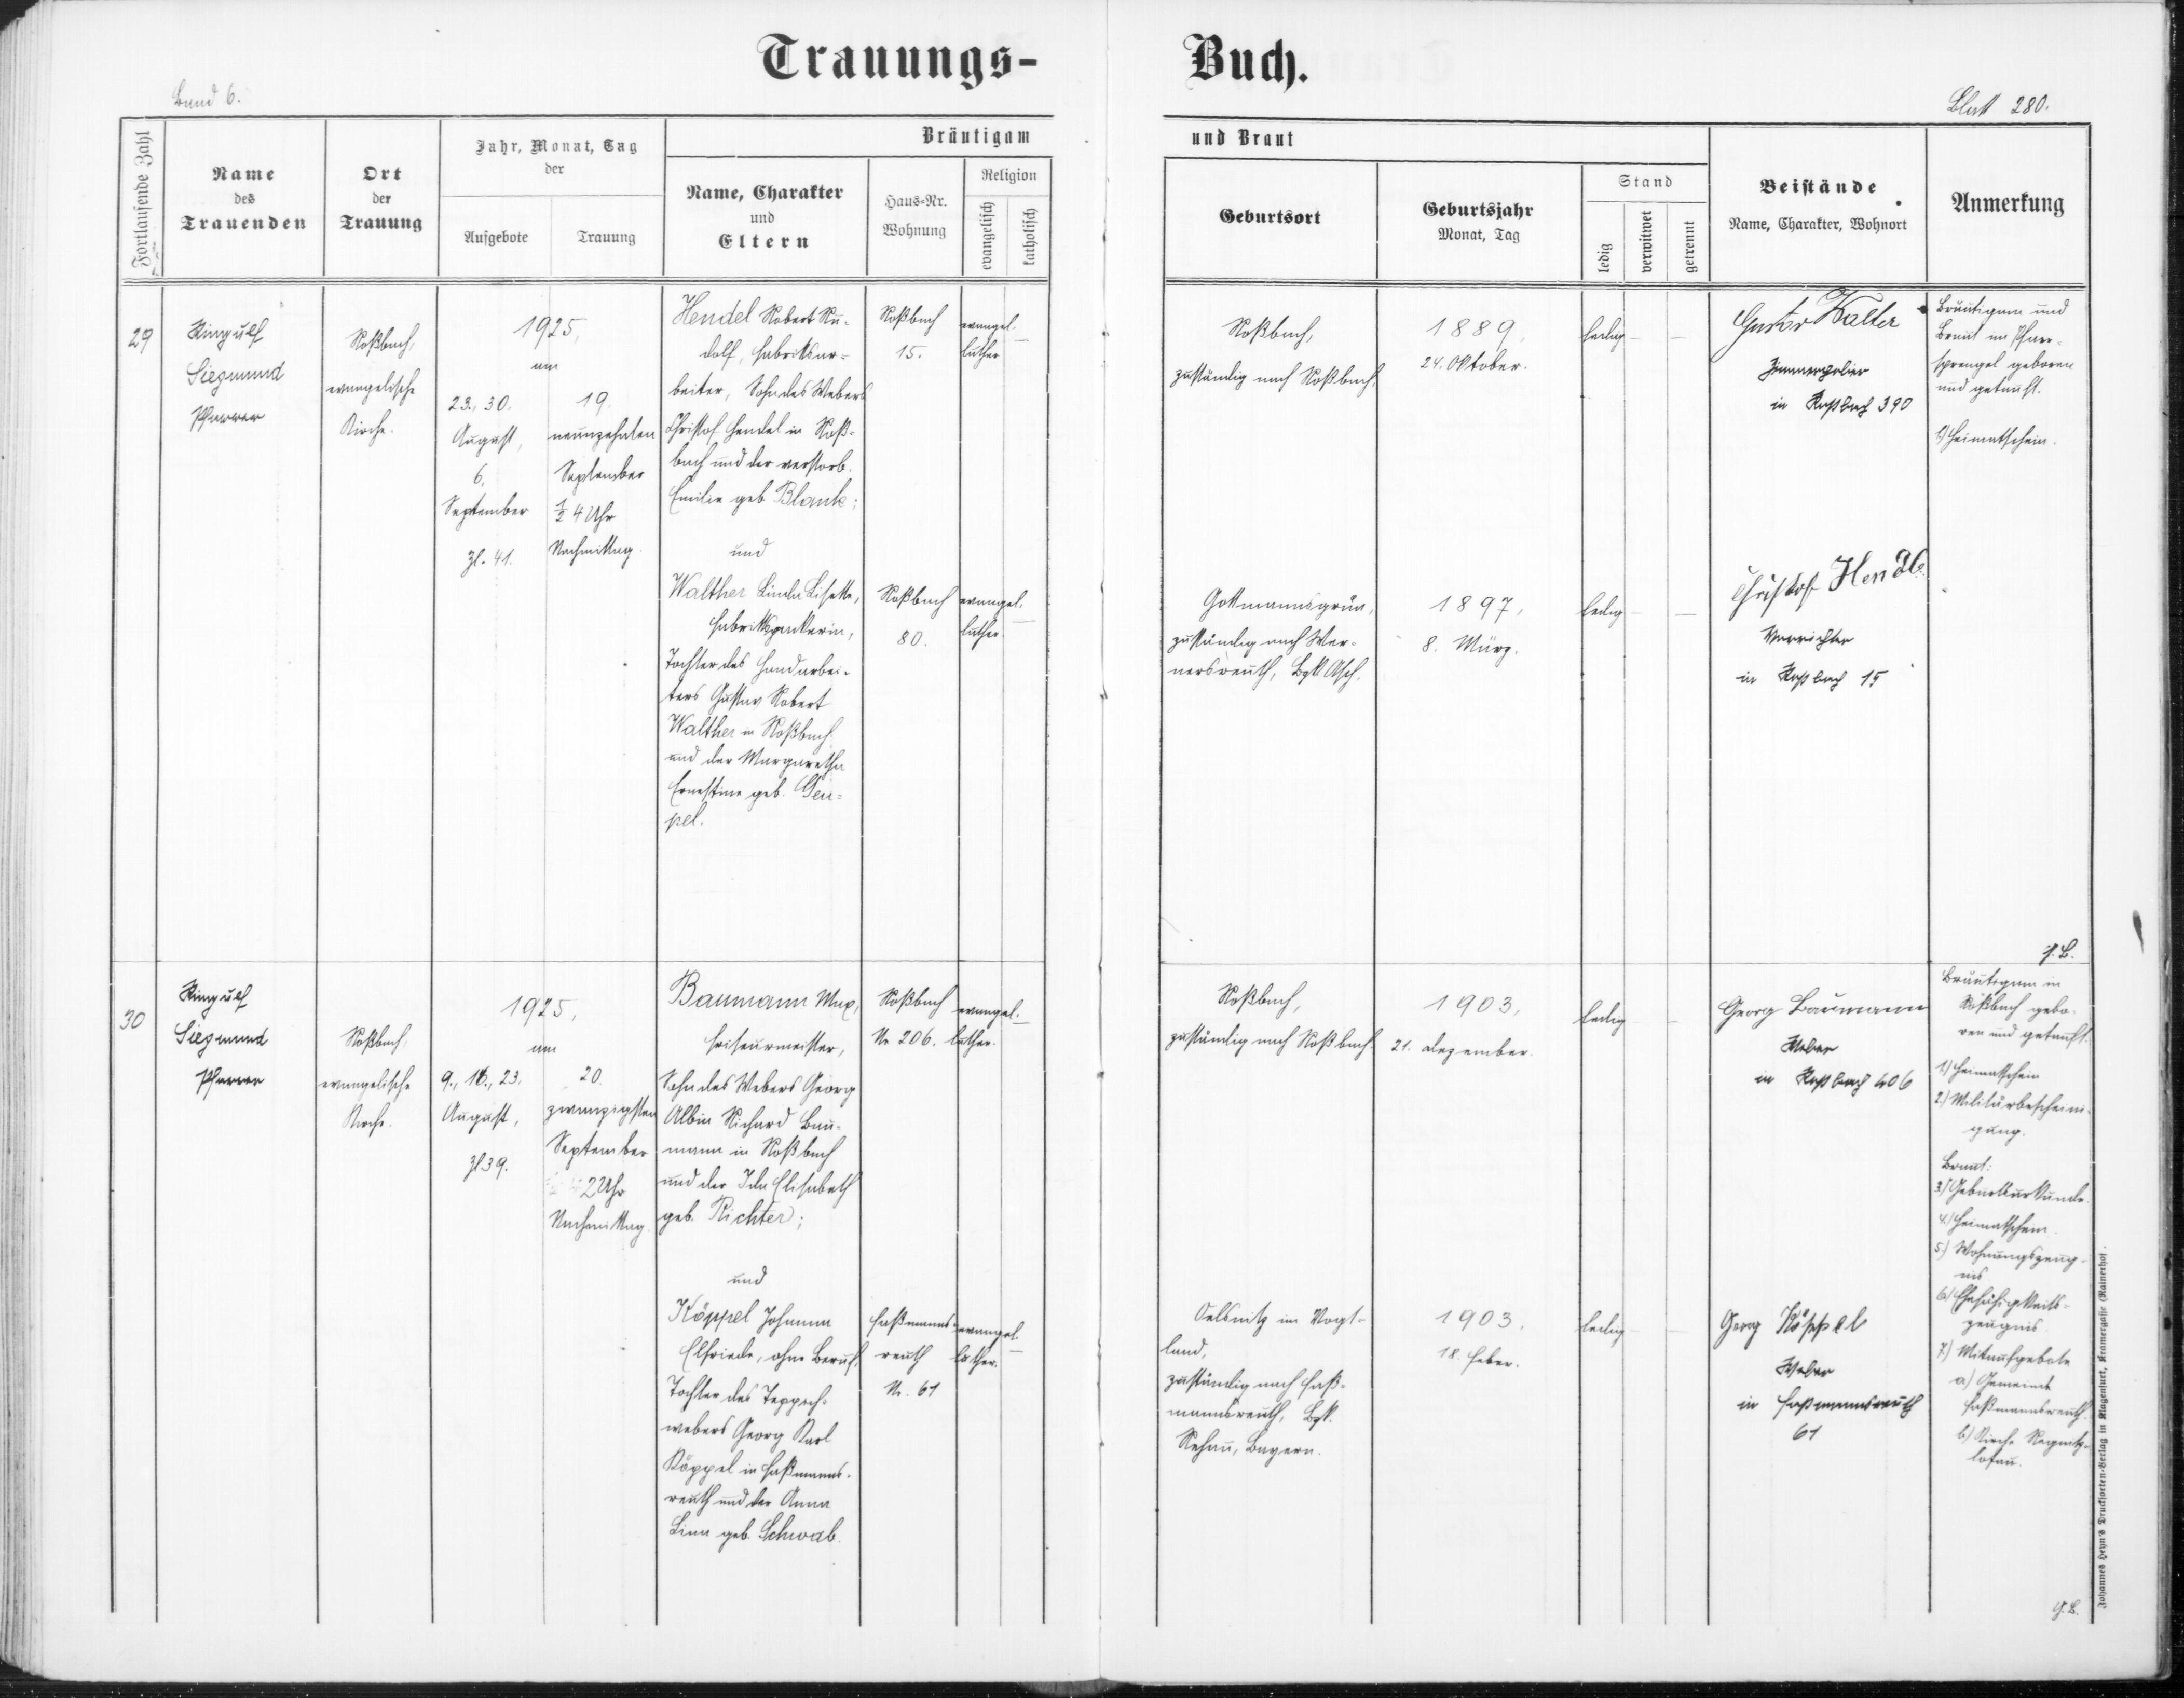 Trauungs-
Buch.
Band 6.
Blatt 280.
Fortlaufende Zahl
Name
des
Trauenden
Ort
der
Trauung
Jahr, Monat, Tag
der
Aufgebote
Trauung
Bräutigam
und Braut
Name, Charakter
und
Eltern
Haus-Nr.
Wohnung
Religion
evangelisch
katholisch
Geburtsort
Geburtsjahr
Monat, Tag
Stand
ledig
verwitwet
getrennt
Beistände
Name, Charakter, Wohnort
Anmerkung
29
Ringulf
Siegmund
Pfarrer
Roßbach,
evangelische
Kirche.
1925,
am
23., 30.
August,
6.
September
Zl. 41.
19.
neunzehnten
September
½ 4 Uhr
Nachmittag.
Hendel Robert Ru-
dolf, Fabriksar-
beiter, Sohn des Webers
Christof Hendel in Roß-
bach und der verstorb.
Emilie geb. Blank;
und
Walther Linda Lisette,
Fabrikspackerin,
Tochter des Handarbei-
ters Gustav Robert
Walther in Roßbach
und der Margaretha
Ernestine geb. Geu-
pel.
Roßbach
15.
evangel.
luther.
Roßbach
80.
evangel.
luther.
Roßbach,
zuständig nach Roßbach.
1889,
24. Oktober.
ledig
Gottmannsgrün,
zuständig nach Wer-
nersreuth, Bzk. Asch.
1897,
8. März.
ledig
Gustav Walter
Zimmerpolier
in Roßbach 390
Christof Hendel
Vorrichter
in Roßbach 15
Bräutigam und
Braut im Pfarr-
sprengel geboren
und getauft.
1.) Heimatschein.
30
Ringulf
Siegmund
Pfarrer
Roßbach,
evangelische
Kirche.
1925,
am
9., 16., 23.
August,
Zl 39.
20.
zwanzigsten
September
2 Uhr
Nachmittag.
Baumann Max,
Friseurmeister,
Sohn des Webers Georg
Albin Richard Bau-
mann in Roßbach
und der Ida Elisabeth
geb. Richter;
und
Köppel Johanna
Elfriede, ohne Beruf,
Tochter des Teppich-
webers Georg Karl
Köppel in Faßmanns-
reuth und der Anna
Lina geb. Schwab.
Roßbach
Nr. 206.
evangel.
luther.
Faßmanns-
reuth
Nr. 61
evangel.
luther.
Roßbach,
zuständig nach Roßbach.
1903,
21. Dezember.
ledig
Oelsnitz im Vogt-
land,
zuständig nach Faß-
mannsreuth, Bzk.
Rehau, Bayern.
1903.
18. Feber.
ledig
Georg Baumann
Weber
in Roßbach 406
Georg Köppel
Weber
in Faßmannsreuth
61
Bräutigam in
Roßbach gebo-
ren und getauft.
1.) Heimatschein
2.) Militärbescheini-
gung.
Braut:
3.) Geburtsurkunde.
4.) Heimatschein
5.) Wohnungszeug-
nis
6.) Ehefähigkeits-
zeugnis
7.) Mitaufgebote
a) Gemeinde
Faßmannsreuth.
b) Kirche Regnitz-
losau.
Johannes Heyn's Drucksorten-Verlag in Klagenfurt, Kramergasse (Rainerhof).